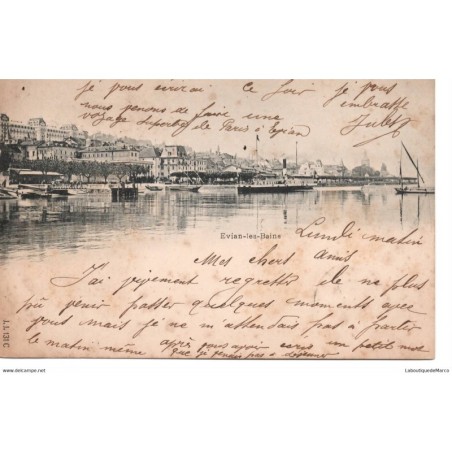 je vous écrirai ce soir je vous
embrasse
nous venons de faire une
voyage de Paris à Evian
Juliette
Evian-les-Bains
Lundi matin
Mes chers amis
J'ai vivement regretter de ne plus
pu venir passer quelques moments avec
vous mais je ne m'attendais pas à partir
le matin même après vous avoir écris un petit mot
que je venais pas à déjeuner
www.delcampe.net
LaboutiquedeMarco